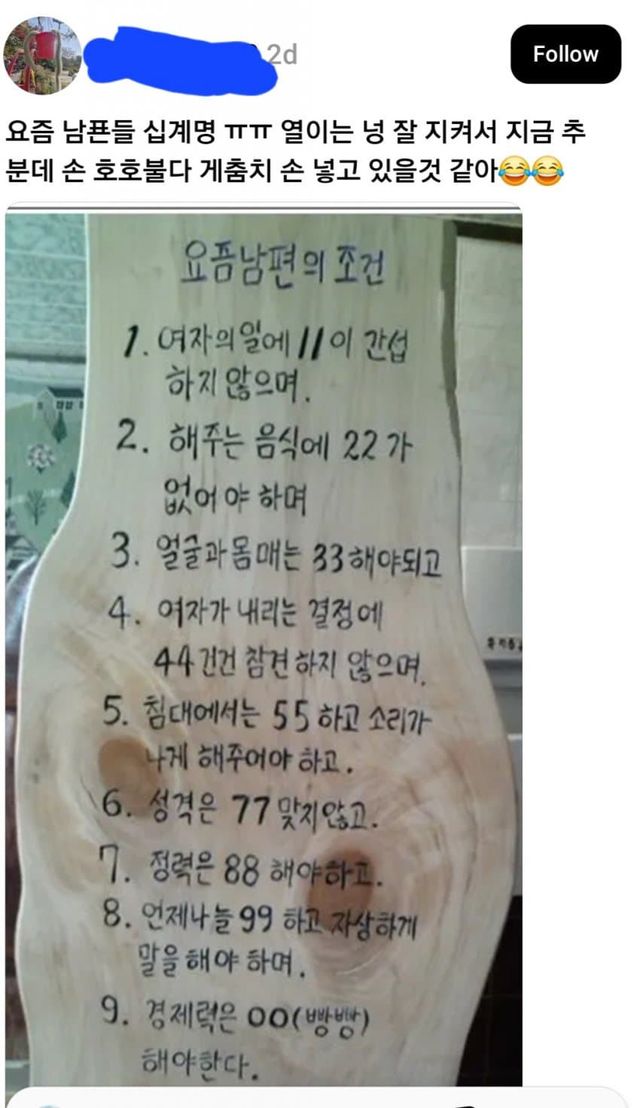 2d
Follow
요즘 남푠들 십계명 ㅠㅠ 열이는 넝 잘 지켜서 지금 추
분데 손 호호불다 게춤치 손 넣고 있을것 같아😂😂
요즘남편의 조건
1. 여자의일에 11이 간섭
하지 않으며.
2. 해주는 음식에 22가
없어야 하며
3. 얼굴과몸매는 33해야되고
4. 여자가 내리는 결정에
44건건 참견하지 않으며.
5. 침대에서는 55하고 소리가
나게 해주어야 하고.
6. 성격은 77맞지않고.
7. 정력은 88 해야하고.
8. 언제나늘99 하고 자상하게
말을해야 하며.
9. 경제력은 00(빵빵)
해야한다.